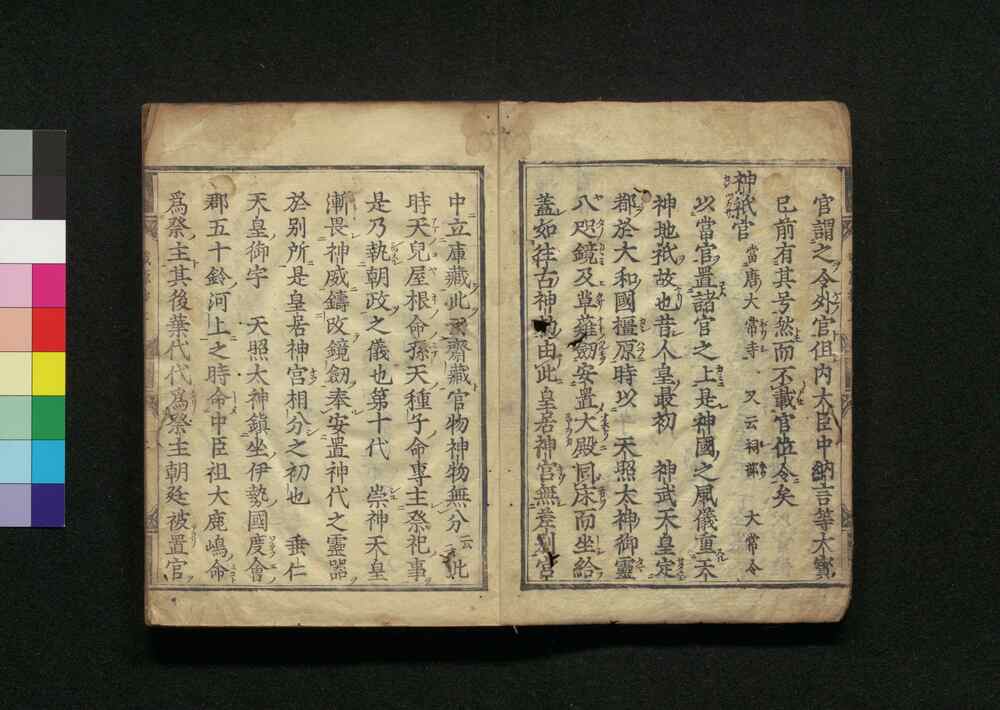 官謂之令外官但内大臣中納言等大寶
已前有其号然而不載官位令矣
神祇官 當唐大常寺 又云祠部 大常令
以當官置諸官之上是神國之風儀重天
神地祇故也昔人皇最初 神武天皇定
都於大和國橿原時以 天照太神御靈
八咫鏡及草薙劔安置大殿同床而坐給
蓋如往古神 由此皇居神宮無差別宮
中立庫藏此 齋藏官物神物無分云此
時天兒屋根命孫天種子命專主祭祀事
是乃執朝政之儀也第十代 崇神天皇
漸畏神威鑄改鏡劔奉安置神代之靈器
於別所是皇居神宮相分之初也 垂仁
天皇御宇 天照太神鎮坐伊勢國度會
郡五十鈴河上之時命中臣祖大鹿嶋命
爲祭主其後葉代代爲祭主朝廷被置官